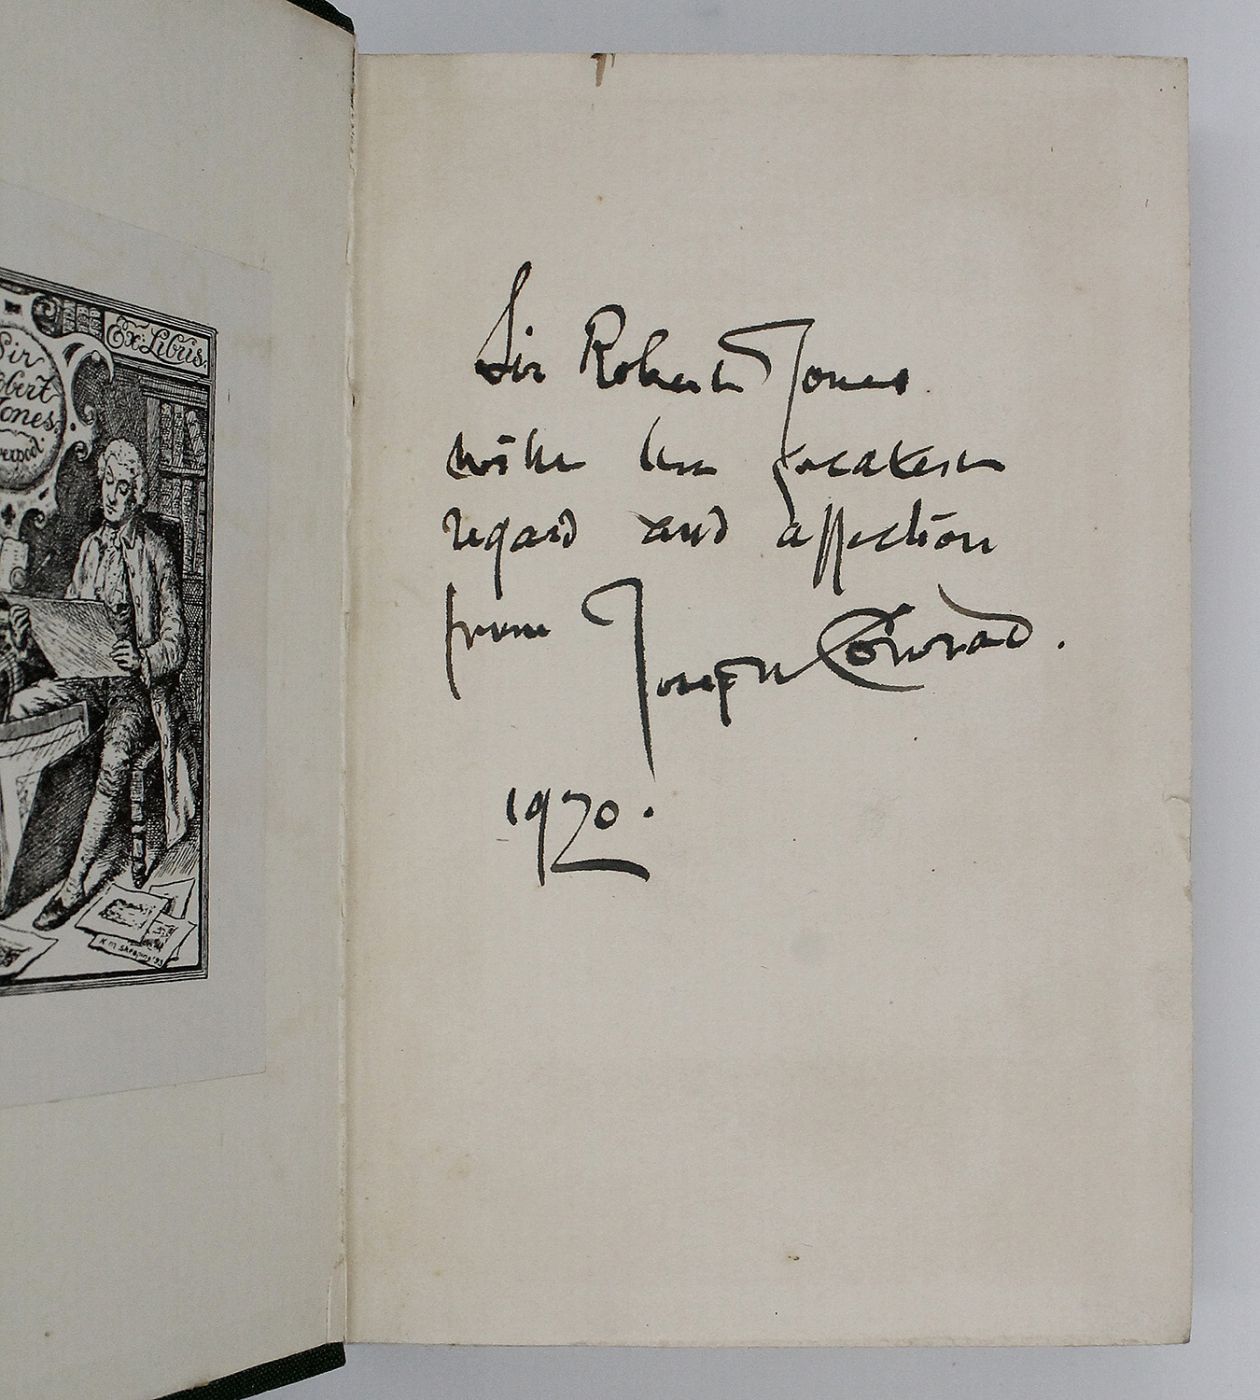 Ex Libris.
Sir
obert
Jones.
erpool
Sir Robert Jones
with the greatest
regard and affection
from Joseph Conrad.
1920.